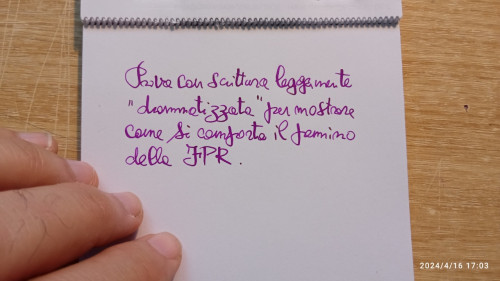 Prova con scrittura leggermente
"drammatizzata" per mostrare
come si comporta il pennino
della FPR.
2024/4/16 17:03